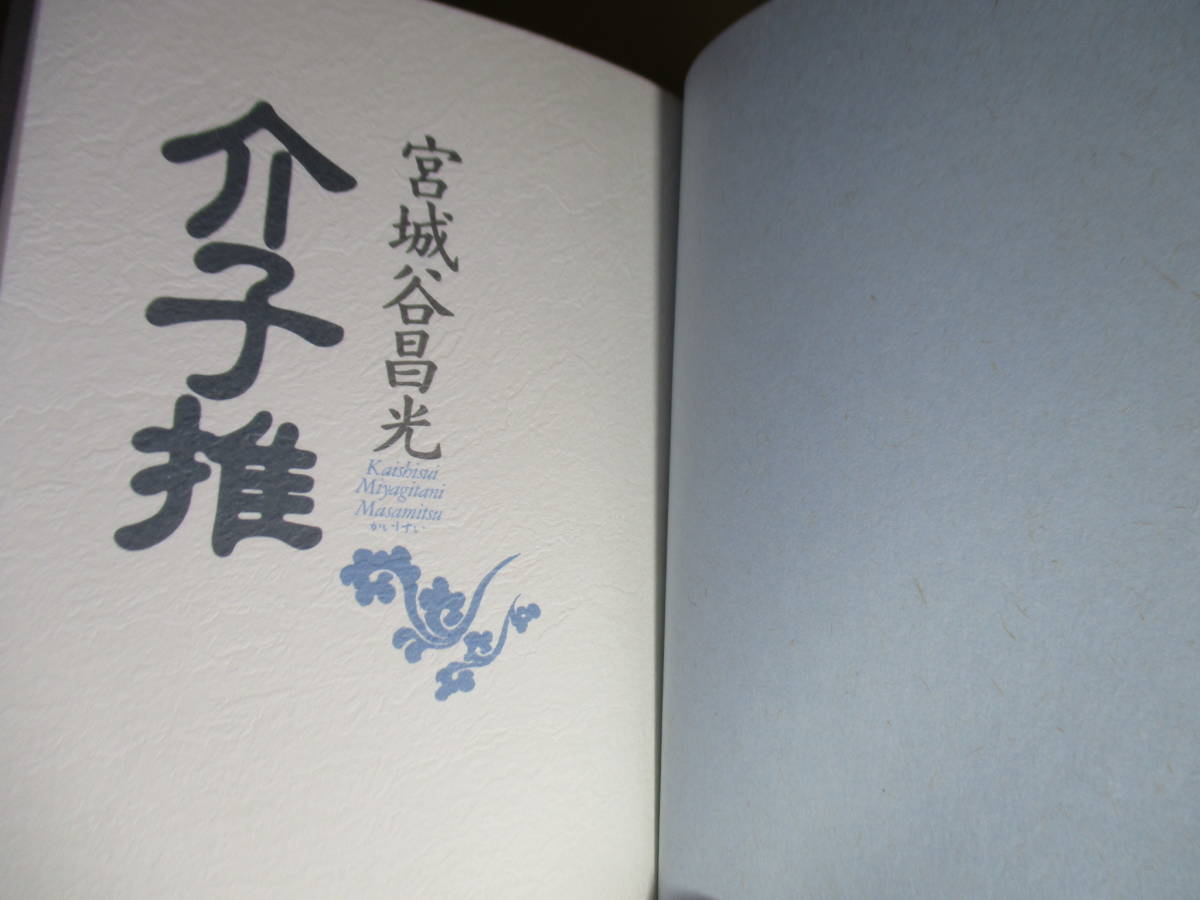 宮城谷昌光
介子推
Kaishisui
Miyagitani
Masamitsu
かいしすい